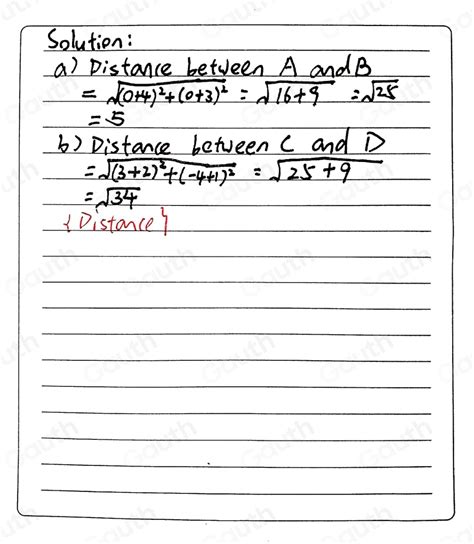 Solution:
a) Distance between A and B
= √(0+4)²+(0+3)² = √16+9 = √25
= 5
b) Distance between C and D
= √(3+2)²+(-4+1)² = √25+9
= √34
{Distance}